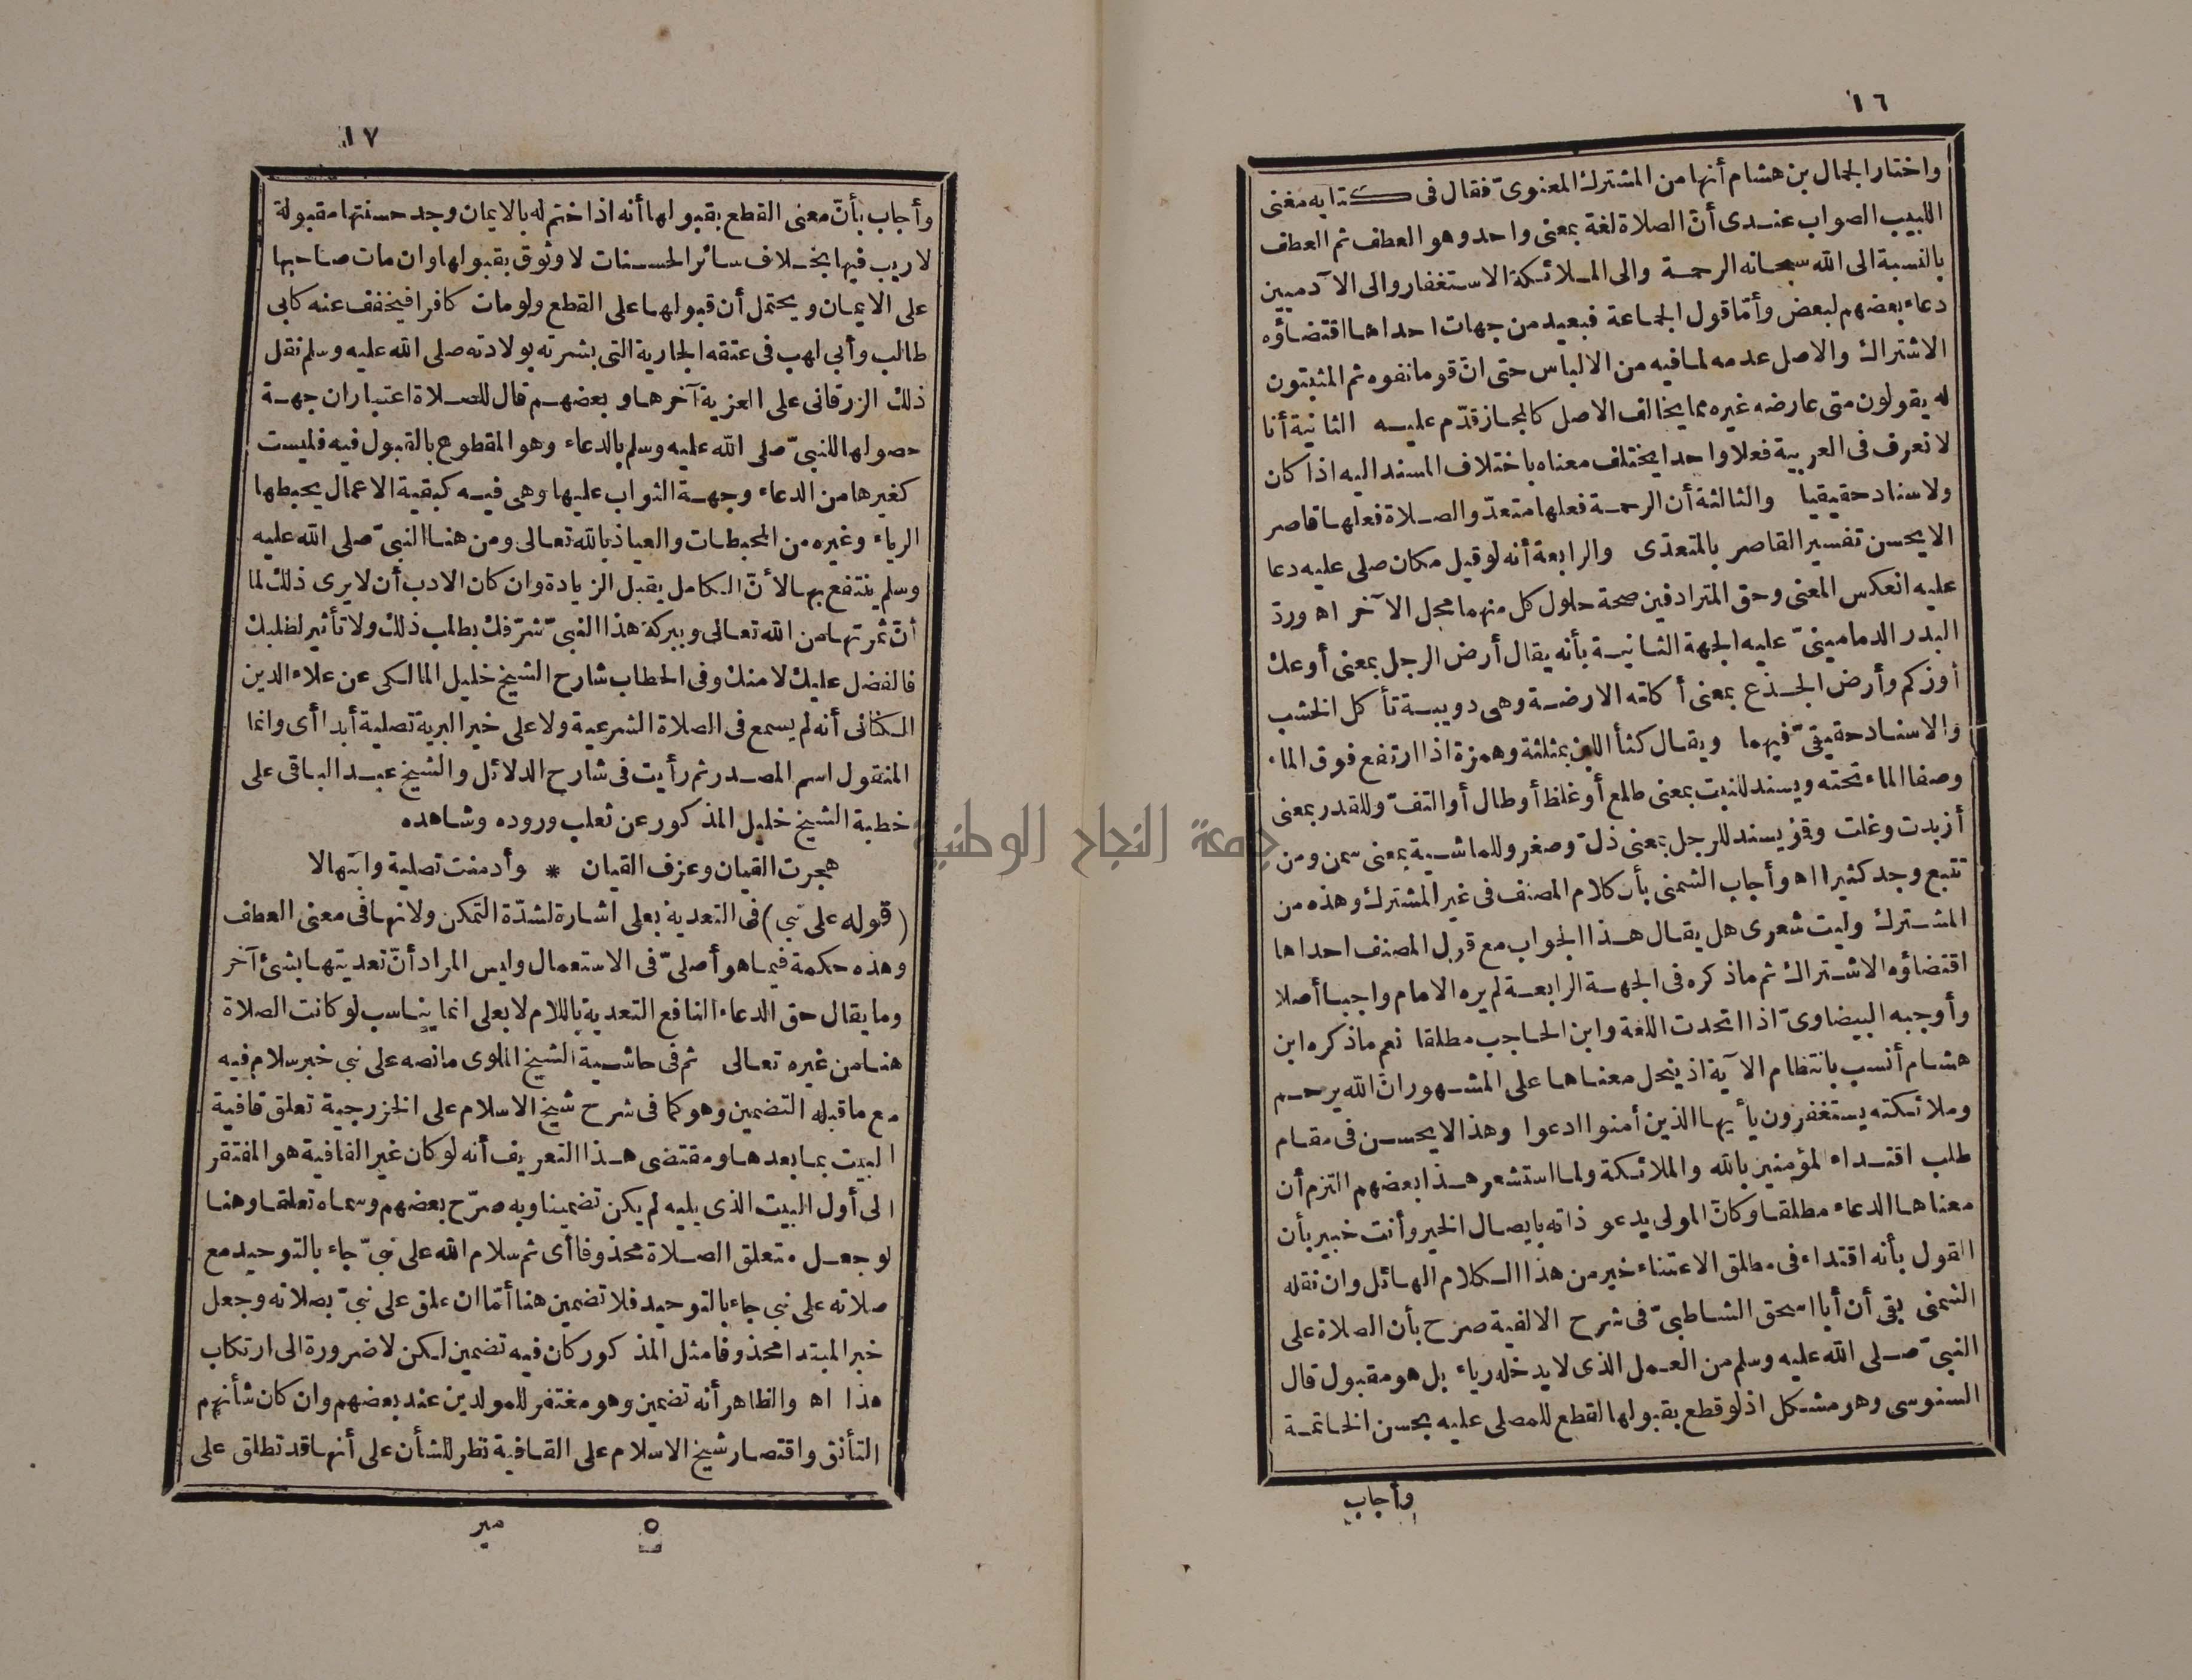 ١٦
واختار الجمال بن هشام أنها من المشترك المعنوىّ فقال فى كتابه مغنى
اللبيب الصواب عندى أنّ الصلاة لغة بمعنى واحد وهو العطف ثم العطف
بالنسبة الى الله سبحانه الرحمة والى الملائكة الاستغفار والى الآدميين
دعاء بعضهم لبعض وأمّا قول الجماعة فبعيد من جهات احداها اقتضاؤه
الاشتراك والاصل عدمه لما فيه من الالباس حتى انّ قوما نفوه ثم المثبتون
له يقولون متى عارضه غيره مما يخالف الاصل كالمجاز قدّم عليه الثانية أنا
لا نعرف فى العربية فعلا واحدا يختلف معناه باختلاف المسند اليه اذا كان
ولاسناد حقيقيا والثالثة أن الرحمة فعلها متعدّ والصلاة فعلها قاصر
الا يحسن تفسير القاصر بالمتعدّى والرابعة أنه لو قيل مكان صلى عليه دعا
عليه انعكس المعنى وحق المترادفين صحة حلول كل منهما محل الآخر اه وردّ
البدر الدمامينىّ عليه الجهة الثانية بأنه يقال أرض الرجل بمعنى أوعك
أوزكم وأرض الجذع بمعنى أكلته الارضة وهى دويبة تأكل الخشب
والاسناد حقيقىّ فيهما ويقال كثأ اللبن بمثلثة وهمزة اذا ارتفع فوق الماء
وصفا الماء تحته ويسند للنبت بمعنى طلع أوغلظ أوطال أوالتفّ وللقدر بمعنى
أزبدت وغلت وقؤ يسند للرجل بمعنى ذلّ وصغر وللماشية بمعنى سمن ومن
تتبع وجد كثيرا اه وأجاب الشمنى بأن كلام المصنف فى غير المشترك وهذه من
المشترك وليت شعرى هل يقال هذا الجواب مع قول المصنف احداها
اقتضاؤه الاشتراك ثم ماذكره فى الجهة الرابعة لم يره الامام واجبا أصلا
وأوجبه البيضاوىّ اذا اتحدت اللغة وابن الحاجب مطلقا نعم ماذكره ابن
هشام أنسب بانتظام الآية اذ ينحل معناها على المشهور انّ الله يرحم
وملائكته يستغفرون يأيها الذين أمنوا ادعوا وهذا لا يحسن فى مقام
طلب اقتداء المؤمنين بالله والملائكة ولما استشعر هذا بعضهم التزم أن
معناها الدعاء مطلقا وكانّ المولى يدعو ذاته بايصال الخير وأنت خبير بأن
القول بأنه اقتداء فى مطلق الاعتناء خير من هذا الكلام الهائل وان نقله
الشمنى بقى أن أبا اسحق الشاطبىّ فى شرح الالفية صرّح بأن الصلاة على
النبىّ صلى الله عليه وسلم من العمل الذى لا يدخله رياء بل هو مقبول قال
السنوسى وهو مشكل اذ لو قطع بقبولها لقطع للمصلى عليه بحسن الخاتمة
وأجاب
١٧
وأجاب بأنّ معنى القطع بقبولها أنه اذا ختم له بالايمان وجد حسنتها مقبولة
لا ريب فيها بخلاف سائر الحسنات لا وثوق بقبولها وان مات صاحبها
على الايمان ويحتمل أن قبولها على القطع ولو مات كافرا فيخفف عنه كابى
طالب وأبى لهب فى عتقه الجارية التى بشرته بولادته صلى الله عليه وسلم نقل
ذلك الزرقانى على العزية آخرها وبعضهم قال للصلاة اعتباران جهة
حصولها للنبىّ صلى الله عليه وسلم بالدعاء وهو المقطوع بالقبول فيه فليست
كغيرها من الدعاء وجهة الثواب عليها وهى فيه كبقية الاعمال يحبطها
الرياء وغيره من المحبطات والعياذ بالله تعالى ومن هنا النبىّ صلى الله عليه
وسلم ينتفع بها لأنّ الكامل يقبل الزيادة وان كان الادب أن لا يرى ذلك لما
أنّ ثمرتها من الله تعالى وببركة هذا النبىّ شرّفك بطلب ذلك ولا تأثير لطلبك
فالفضل عليك لا منك وفى الحطاب شارح الشيخ خليل المالكى عن علاء الدين
الكنانى أنه لم يسمع فى الصلاة الشرعية ولا على خير البرية تصلية أبدا أى وانما
المنقول اسم المصدر ثم رأيت فى شارح الدلائل والشيخ عبد الباقى على
خطبة الشيخ خليل المذكور عن ثعلب وروده وشاهده
هجرت القيان وعزف القيان * وأدمنت تصلية وابتهالا
(قوله على نبي) فى التعدية بعلى اشارة لشدّة التمكن ولانها فى معنى العطف
وهذه حكمة فيما هو أصلىّ فى الاستعمال وليس المراد أنّ تعديتها بشئ آخر
وما يقال حق الدعاء النافع التعدية باللام لا بعلى انما يناسب لو كانت الصلاة
هنا من غيره تعالى ثم فى حاشية الشيخ الملوى مانصه على نبي خبر سلام فيه
مع ما قبله التضمين وهو كما فى شرح شيخ الاسلام على الخزرجية تعلق قافية
البيت بما بعدها ومقتضى هذا التعريف أنه لو كان غير القافية هو المفتقر
الى أول البيت الذى يليه لم يكن تضمينا وبه صرّح بعضهم وسماه تعلقا وهنا
لو جعل متعلق الصلاة محذوفا أى ثم سلام الله على نبىّ جاء بالتوحيد مع
صلاته على نبي جاء بالتوحيد فلا تضمين هنا أمّا ان علق على نبىّ بصلاته وجعل
خبر المبتدا محذوفا مثل المذكور كان فيه تضمين لكن لا ضرورة الى ارتكاب
هذا اه والظاهر أنه تضمين وهو مغتفر للمولدين عند بعضهم وان كان شأنهم
التأنق واقتصار شيخ الاسلام على القافية نظر للشأن على أنها قد تطلق على
٥ مير
جامعة النجاح الوطنية